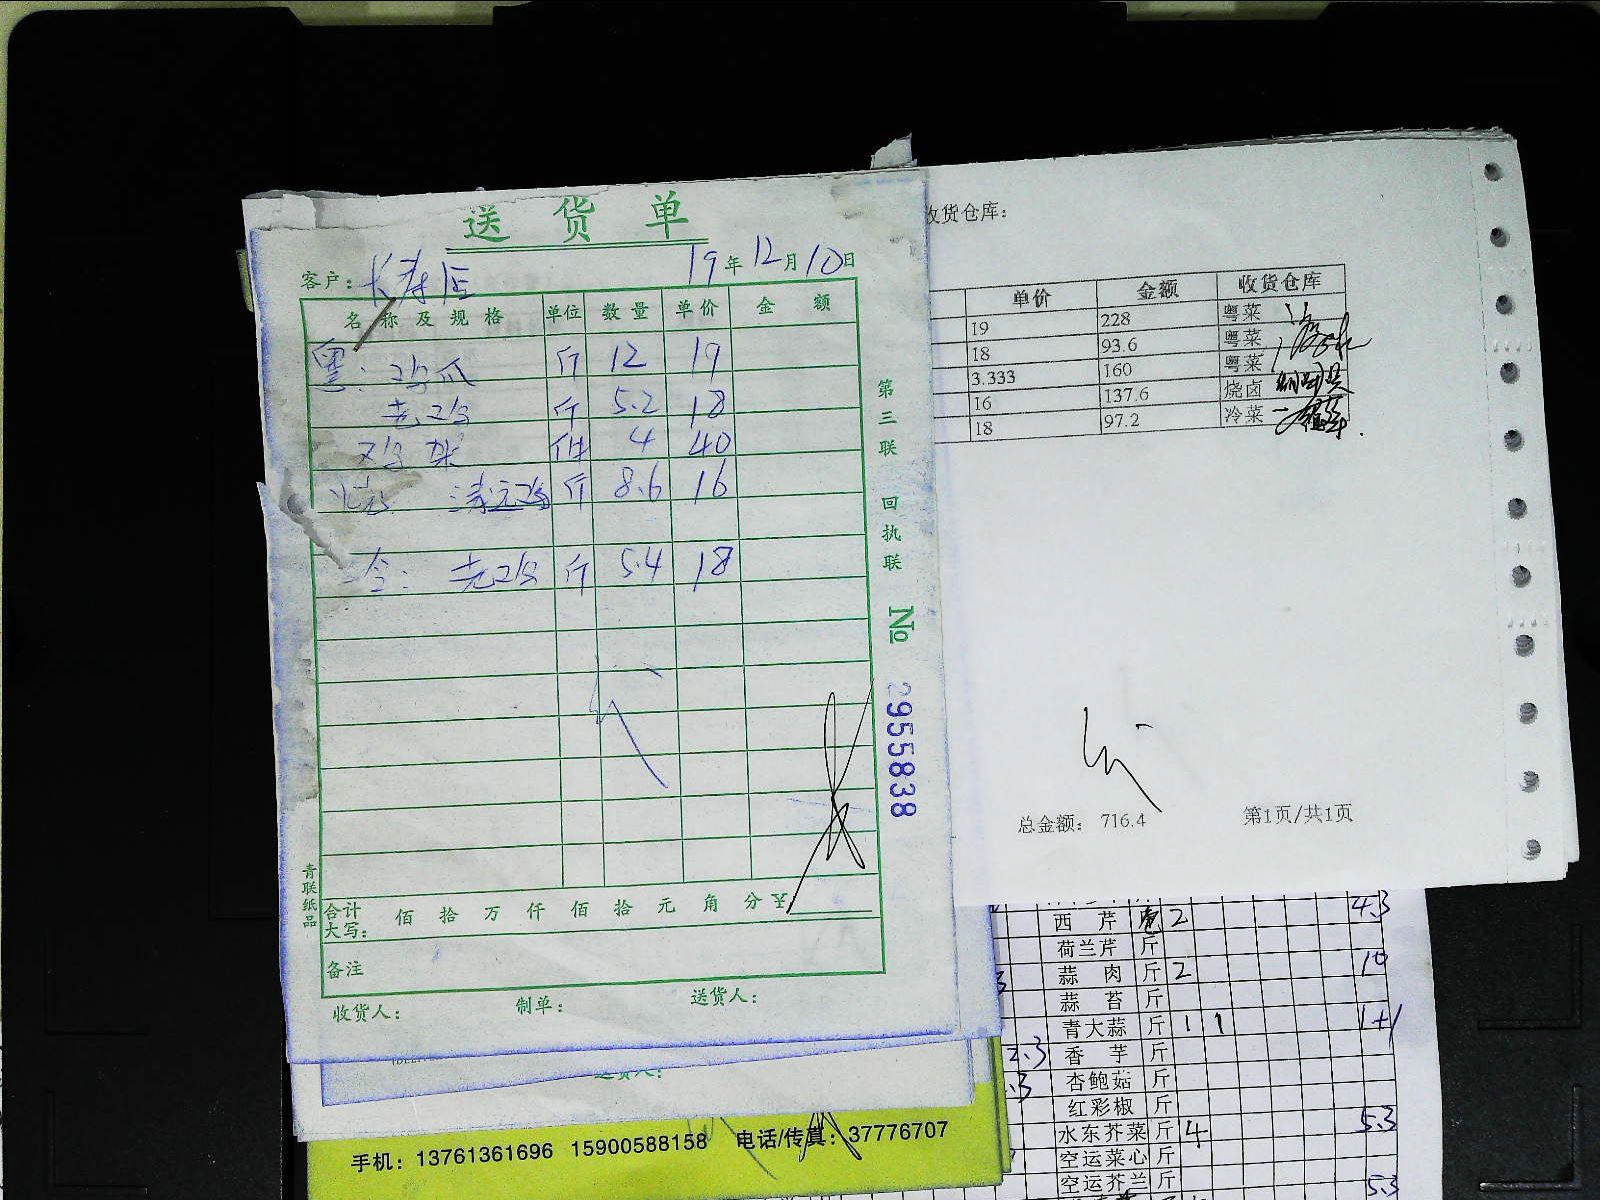 送货单
客户：长寿店 19年12月10日
名称及规格 单位 数量 单价 金额
粤：鸡爪 斤 12 19
老鸡 斤 5.2 18
鸡 件 4 40
斤 8.6 16
冷：老鸡 斤 5.4 18
合计大写： 佰 拾 万 仟 佰 拾 元 角 分 ¥
备注
收货人： 制单： 送货人：
第三联 回执联 № 2955838
青联纸品
收货仓库：
单价 金额 收货仓库
19 228 粤菜
18 93.6 粤菜
3.333 160 粤菜
16 137.6 烧卤
18 97.2 冷菜
总金额： 716.4 第1页/共1页
西芹 2 4.3
荷兰芹 斤
蒜肉 斤 2 10
蒜苔 斤
青大蒜 斤 1 1 1+1
香芋 斤
杏鲍菇 斤
红彩椒 斤
水东芥菜 斤 4 5.3
空运菜心 斤
空运芥兰 斤 5.3
手机：13761361696 15900588158 电话/传真：37776707